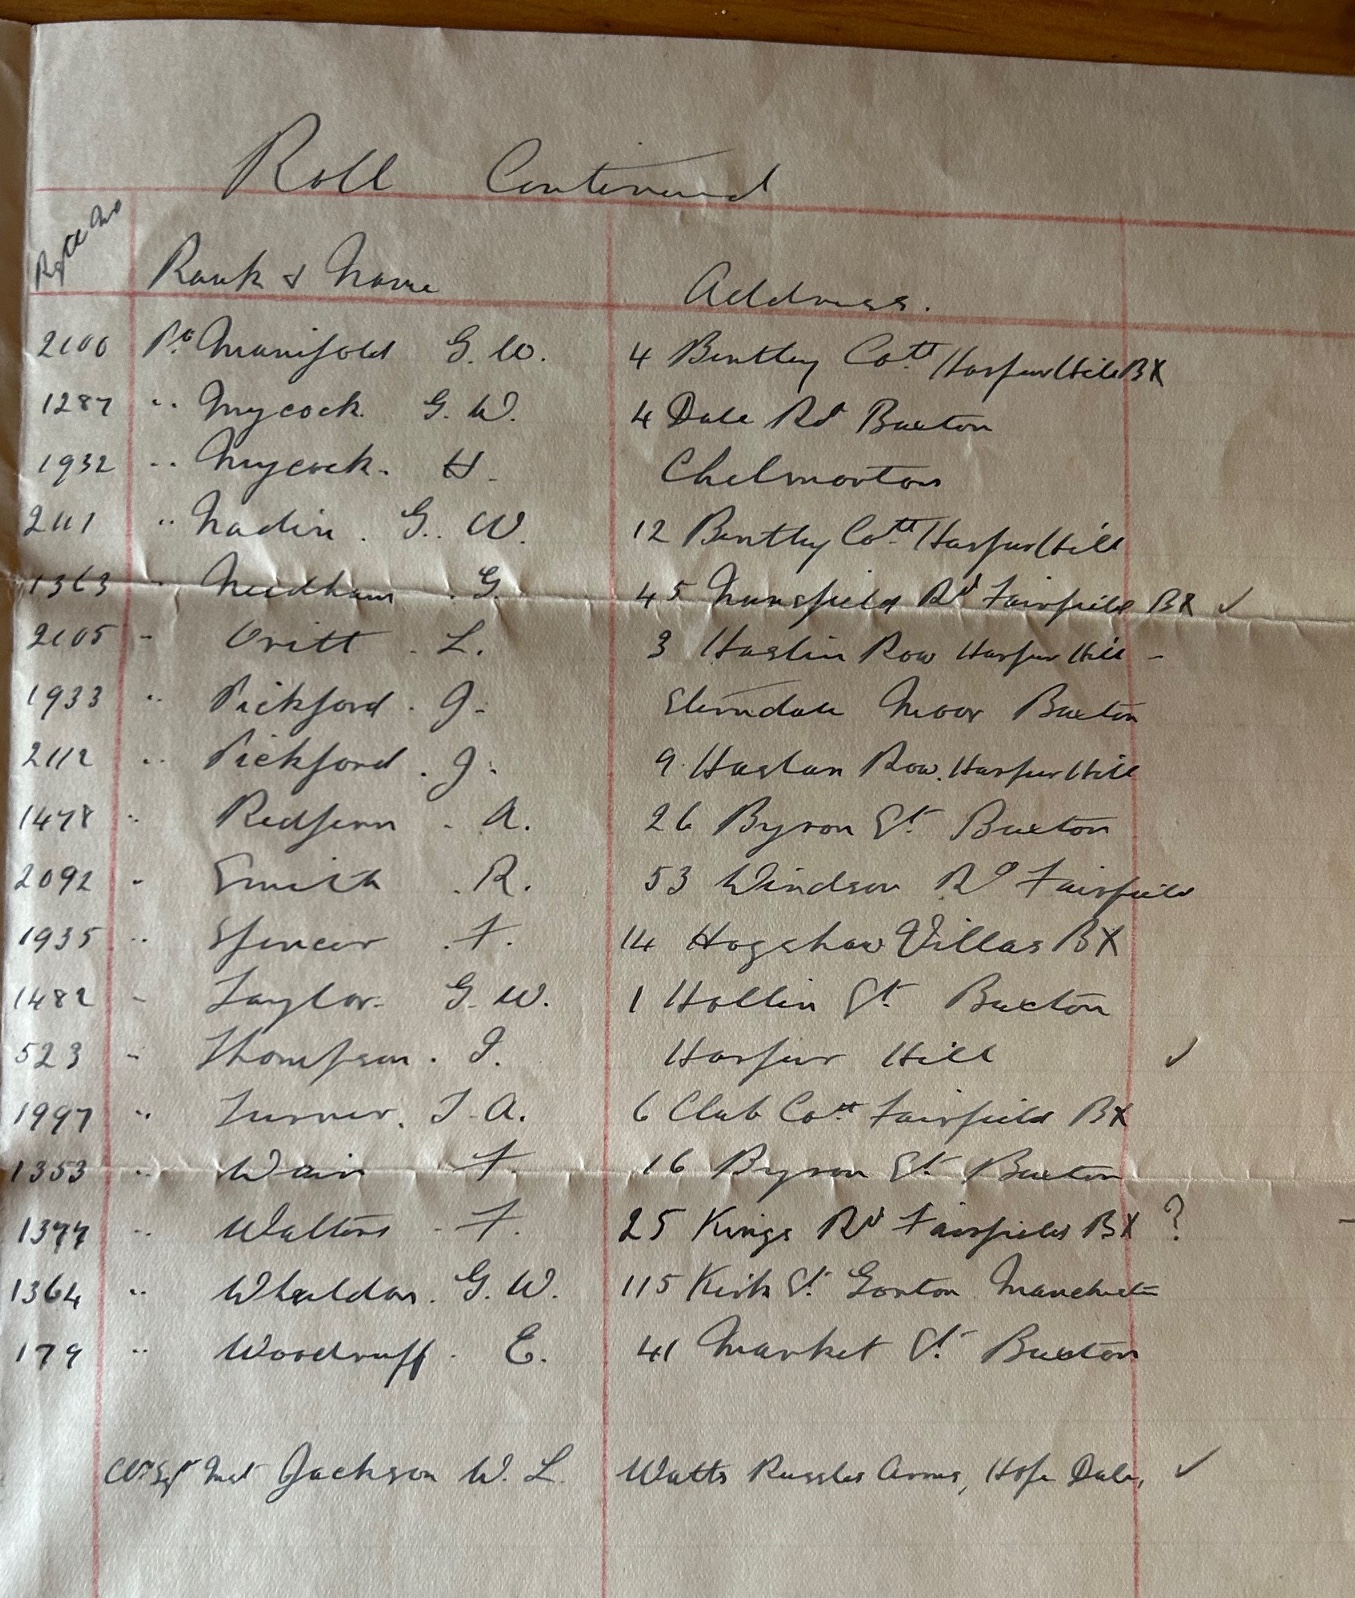 Roll Continued
Rgtl No Rank & Name Address.
2100 Pte Manifold G. W. 4 Bentley Cott Harpur Hill BX
1287 " Mycock G. W. 4 Dale Rd Buxton
1932 " Mycock. H. Chelmorton
2111 " Nadin. G. W. 12 Bentley Cott Harpur Hill
1363 " Needham. G. 45 Mansfield Rd Fairfield BX ✓
2105 " Britt. L. 3 Haslin Row Harpur Hill -
1933 " Pickford. J. Sterndale Moor Buxton
2112 " Pickford. J. 9 Haslan Row. Harpur Hill
1478 " Redfern. A. 26 Byron St. Buxton
2092 " Smith. R. 53 Windsor Rd Fairfield
1935 " Spencer. F. 14 Hogshaw Villas BX
1482 " Taylor. G. W. 1 Hollin St. Buxton
523 " Thompson. I. Harpur Hill ✓
1997 " Turner. J. A. 6 Club Cott Fairfield BX
1353 " Wain F. 16 Byron St. Buxton
1377 " Walters. F. 25 Kings Rd Fairfield BX ?
1364 " Wheeldon. G. W. 115 Kirk St. Gorton Manchester
179 " Woodruff. E. 41 Market St. Buxton
Cr Sgt Mst Jackson W. L. Watts Russles Arms, Hope Dale, ✓